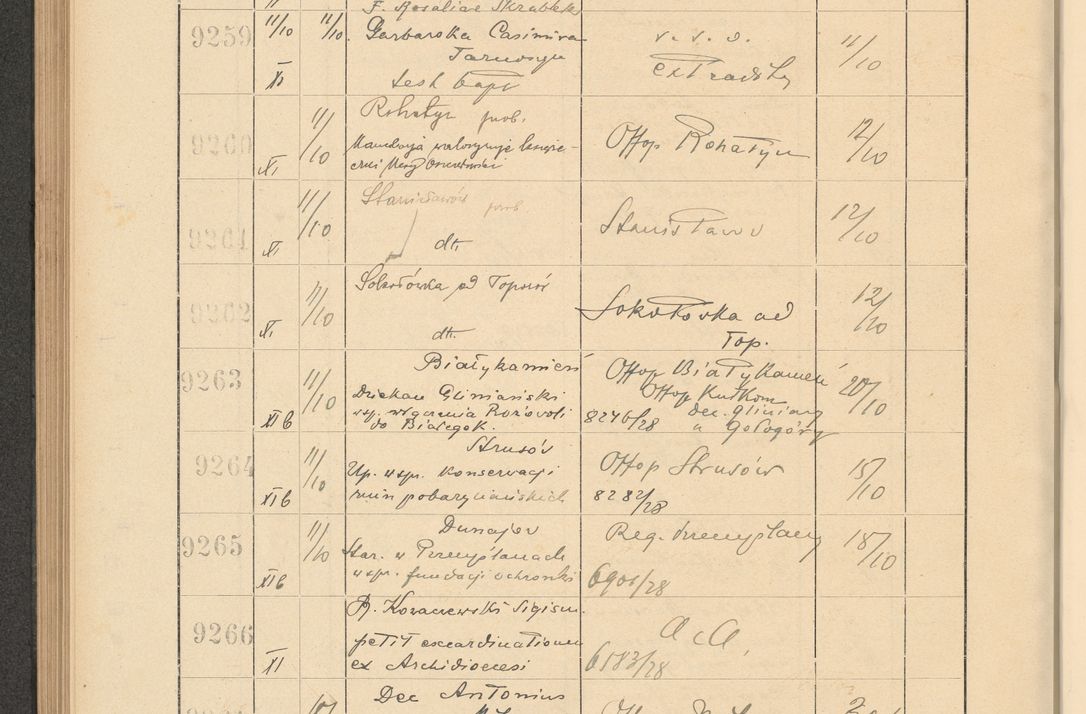 F. Rosaliae Skrabek
9259 11/10 11/10. Garbarska Casimira v. s. v. 11/10
Tarnosyn extradity
XI test bapt
9260 11/10 Rohatyn prob. Offop Rohatyn 12/10
XI
9261 11/10 Stanisławów prob Stanisławów 12/10
XI dtt.
9262 11/10 Sokołówka ad Toporów Sokołówka ad 12/10
XI dtt. Top.
9263 11/10 Białykamień Offop Białykamień 20/10
Dziekan Gliniański Offop Kutkorz
XI b wsp. włączenia Rozvoli 8246/28 dec. Gliniany
do Białegok. a Gołogóry
9264 11/10 Strusów Offop Strusów 15/10
Up. wspr. konserwacji
XI b ruin pobazyliańskich 8282/28
9265 11/10 Dunajów Reg. Przemyślany 18/10
Star. w Przemyślanach
XI b wspr. fundacji ochronki 6901/28
9266 R. Kovaczewski Sigism. a a.
petit excardinationem
XI ex Archidioecesi 6583/28
Dec Antonius